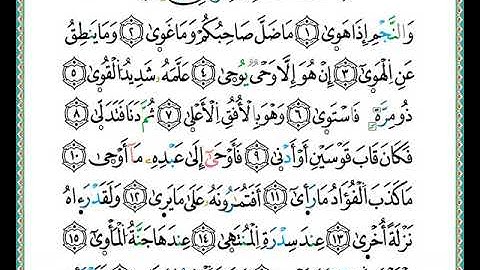 وَالنَّجْمِ إِذَا هَوَىٰ ۝١ مَا ضَلَّ صَاحِبُكُمْ وَمَا غَوَىٰ ۝٢ وَمَا يَنطِقُ
عَنِ الْهَوَىٰ ۝٣ إِنْ هُوَ إِلَّا وَحْيٌ يُوحَىٰ ۝٤ عَلَّمَهُ شَدِيدُ الْقُوَىٰ ۝٥
ذُو مِرَّةٍ فَاسْتَوَىٰ ۝٦ وَهُوَ بِالْأُفُقِ الْأَعْلَىٰ ۝٧ ثُمَّ دَنَا فَتَدَلَّىٰ ۝٨
فَكَانَ قَابَ قَوْسَيْنِ أَوْ أَدْنَىٰ ۝٩ فَأَوْحَىٰ إِلَىٰ عَبْدِهِ مَا أَوْحَىٰ ۝١٠
مَا كَذَبَ الْفُؤَادُ مَا رَأَىٰ ۝١١ أَفَتُمَارُونَهُ عَلَىٰ مَا يَرَىٰ ۝١٢ وَلَقَدْ رَءَاهُ
نَزْلَةً أُخْرَىٰ ۝١٣ عِندَ سِدْرَةِ الْمُنتَهَىٰ ۝١٤ عِندَهَا جَنَّةُ الْمَأْوَىٰ ۝١٥